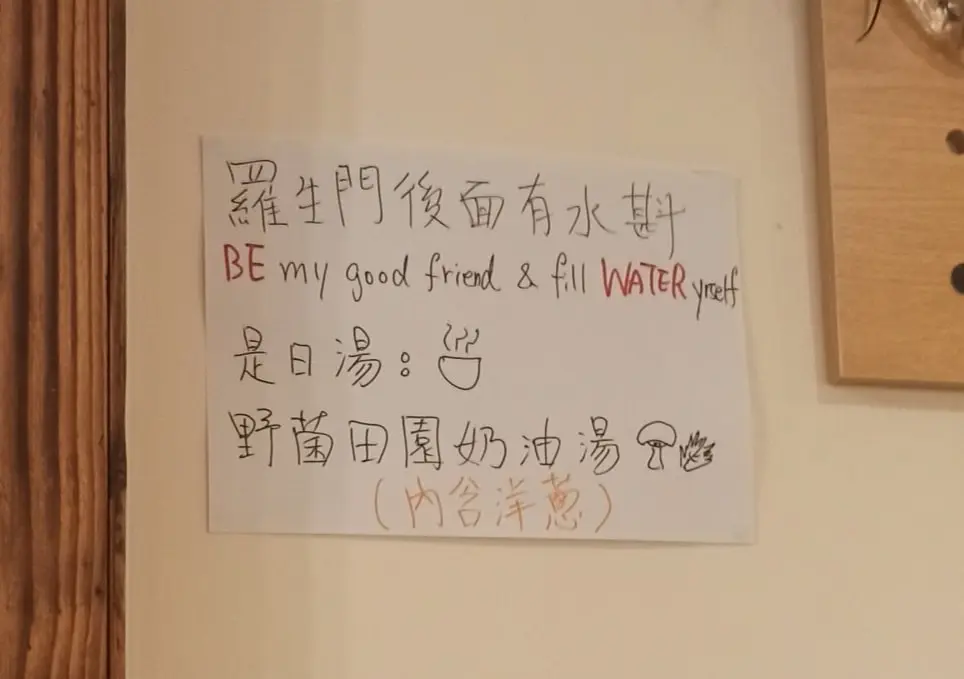 羅生門後面有水斟
BE my good friend & fill WATER yrself
是日湯：
野菌田園奶油湯
（內含洋蔥）